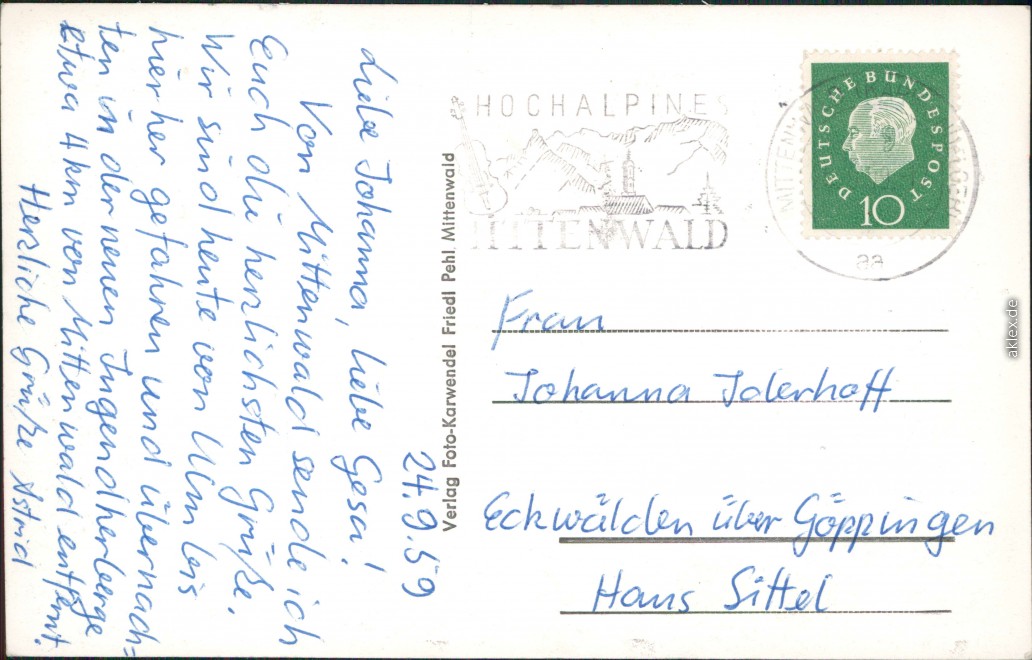 24.9.59
Liebe Johanna, liebe Gesa!
Von Mittenwald sende ich
Euch die herzlichsten Grüße.
Wir sind heute von Ulm bis
hierher gefahren und übernach=
ten in der neuen Jugendherberge
etwa 4km von Mittenwald entfernt.
Herzliche Grüße Astrid
Verlag Foto-Karwendel Friedl Pehl Mittenwald
HOCHALPINES
MITTENWALD
DEUTSCHE BUNDESPOST
10
aa
Frau
Johanna Iderhoff
Eckwälden über Göppingen
Haus Sittel
aklex.de